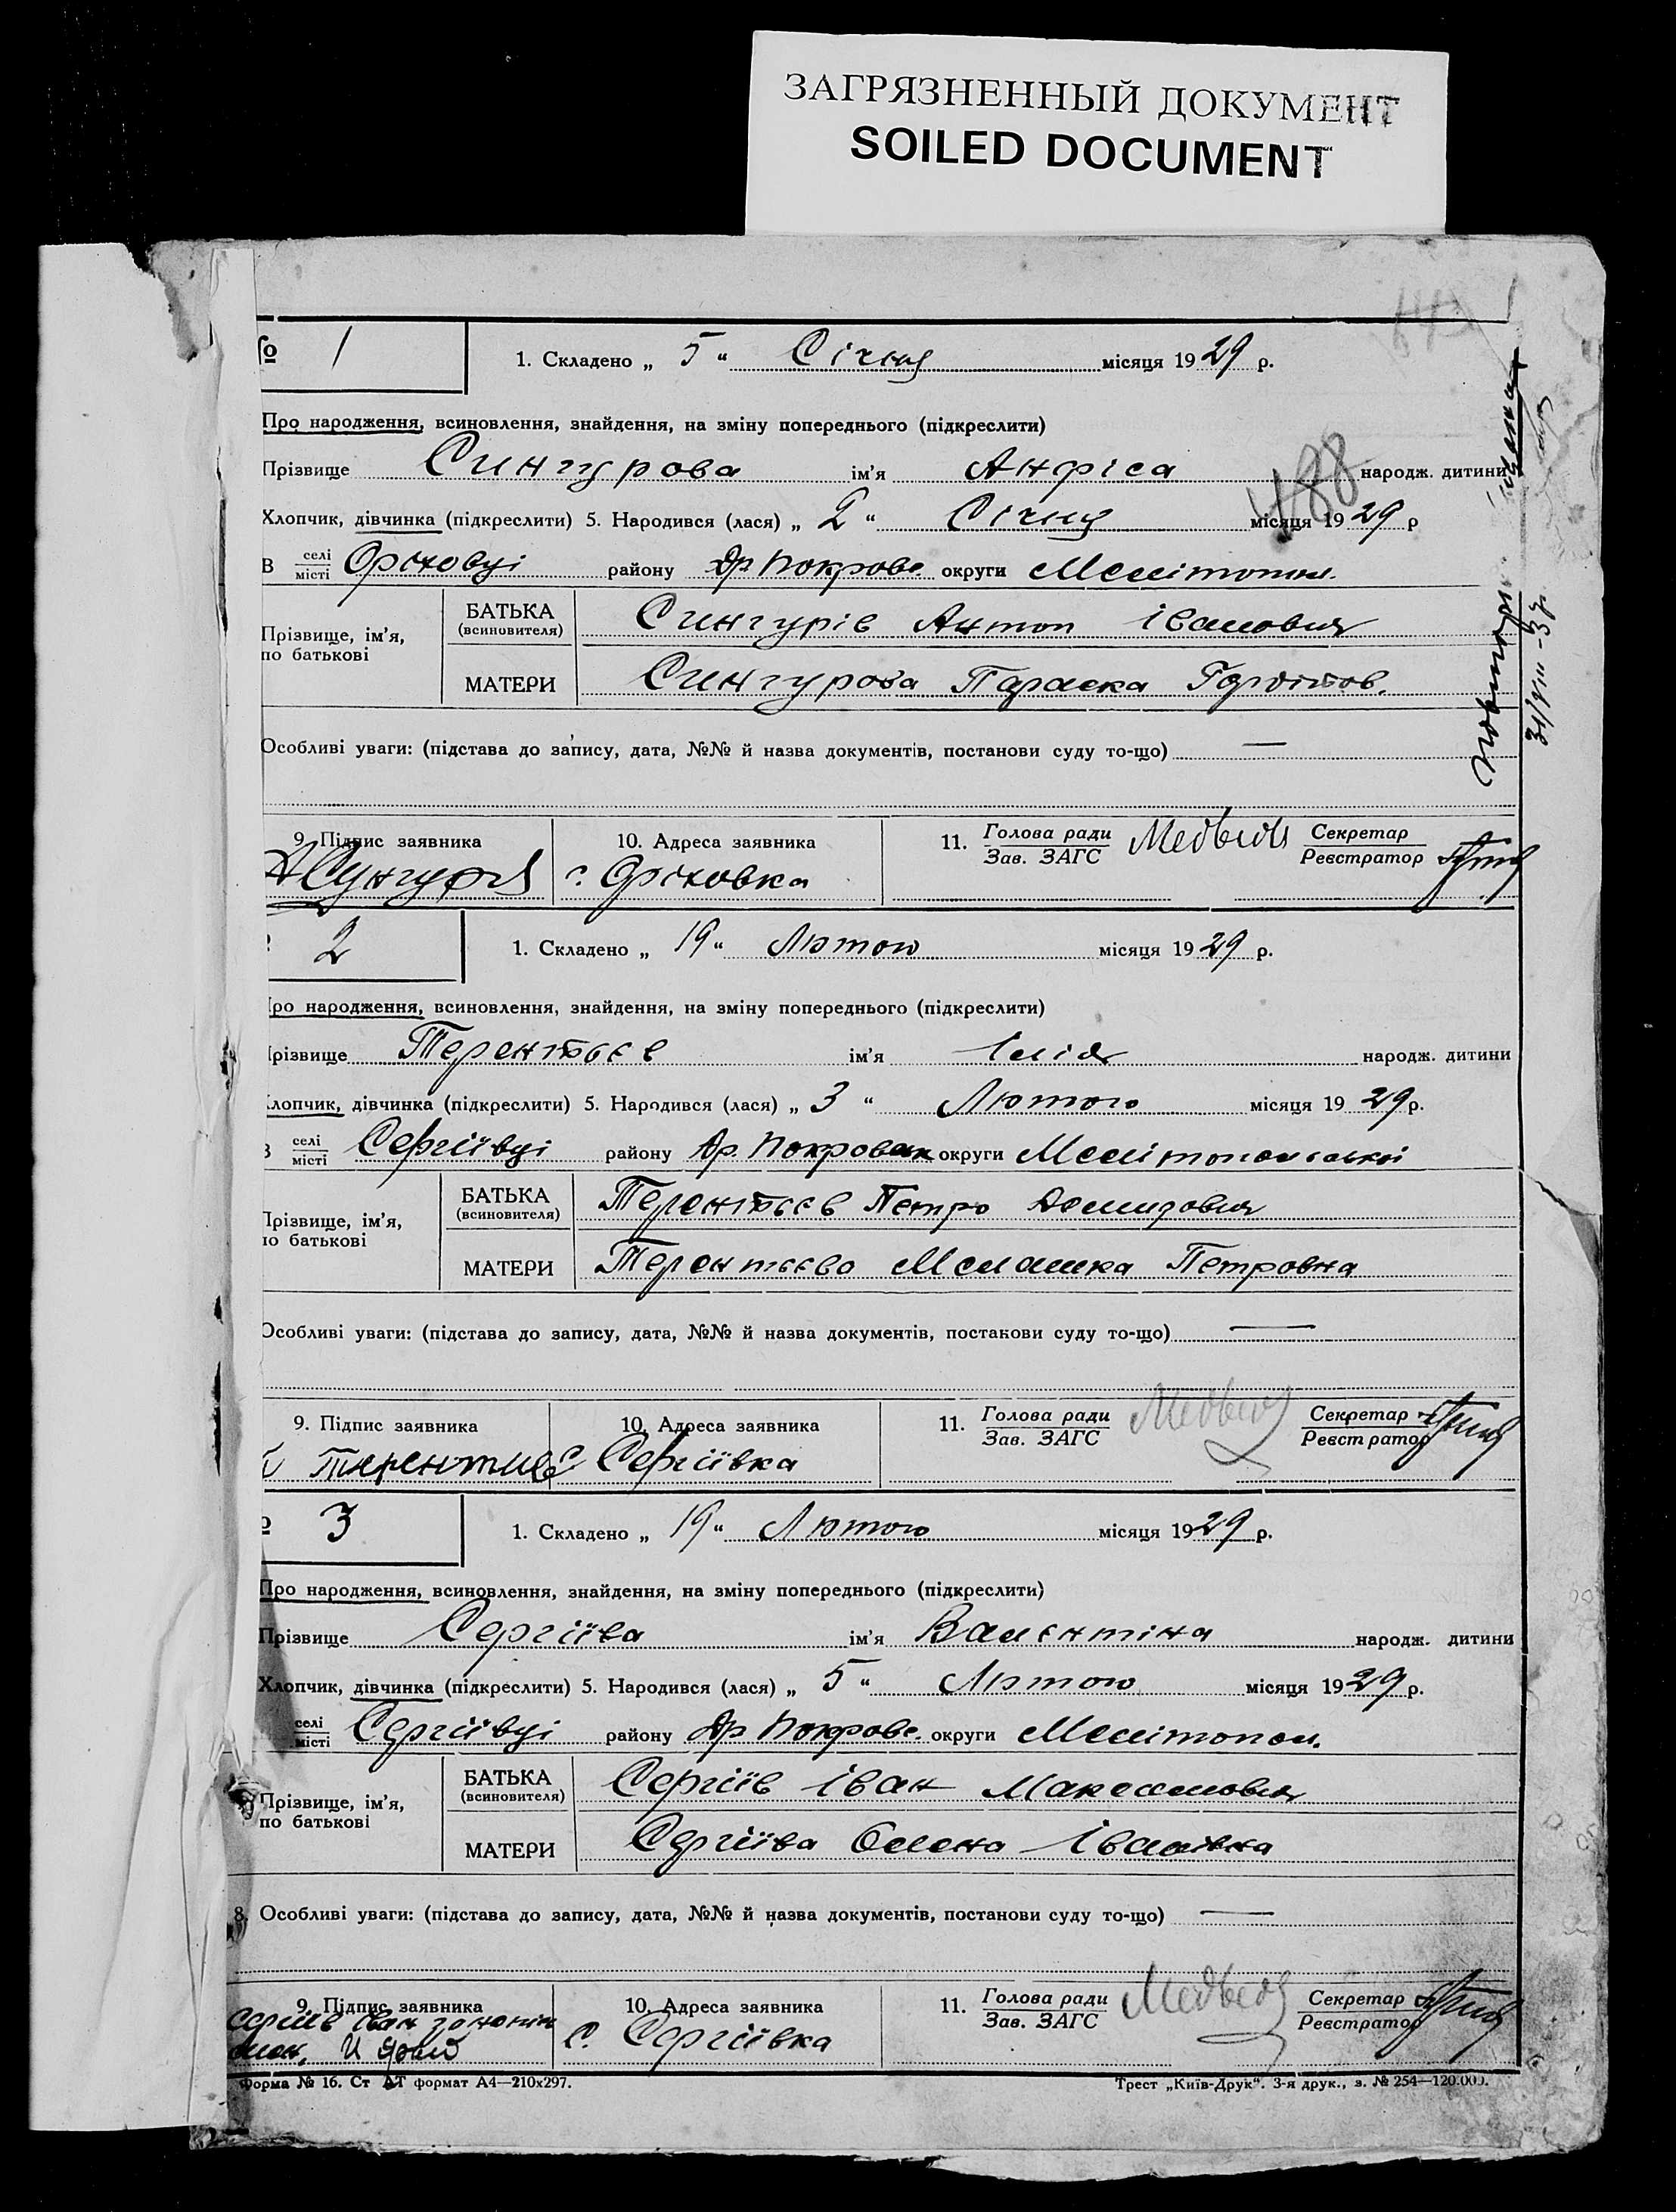 ЗАГРЯЗНЕННЫЙ ДОКУМЕНТ
SOILED DOCUMENT
№ 1
1. Складено „ 5 “ Січня місяця 1929 р.
Про народження, всиновлення, знайдення, на зміну попереднього (підкреслити)
Прізвище Сингурова ім’я Анфіса народж. дитини
488
Хлопчик, дівчинка (підкреслити) 5. Народився (лася) „ 2 “ Січня місяця 1929 р
В селі/місті Оріховці району Др Покровс. округи Мелітопол.
Прізвище, ім’я, по батькові
БАТЬКА (всиновителя) Сингурів Антон Іванович
МАТЕРИ Сингурова Параска
Особливі уваги: (підстава до запису, дата, №№ й назва документів, постанови суду то-що) —
9. Підпис заявника 10. Адреса заявника 11. Голова ради/Зав. ЗАГС Медведь Секретар/Реєстратор
с. Оріховка
2
1. Складено „ 19 “ Лютого місяця 1929 р.
Про народження, всиновлення, знайдення, на зміну попереднього (підкреслити)
Прізвище Терентьєв ім’я Ілія народж. дитини
Хлопчик, дівчинка (підкреслити) 5. Народився (лася) „ 3 “ Лютого місяця 1929 р.
В селі/місті Сергіївці району Др. Покровськ округи Мелітопольської
Прізвище, ім’я, по батькові
БАТЬКА (всиновителя) Терентьєв Петро Демидович
МАТЕРИ Терентєєва Меланка Петровна
Особливі уваги: (підстава до запису, дата, №№ й назва документів, постанови суду то-що) —
9. Підпис заявника 10. Адреса заявника 11. Голова ради/Зав. ЗАГС Медведь Секретар/Реєстратор
с Сергіївка
3
1. Складено „ 19 “ Лютого місяця 1929 р.
Про народження, всиновлення, знайдення, на зміну попереднього (підкреслити)
Прізвище Сергіїва ім’я Валентіна народж. дитини
Хлопчик, дівчинка (підкреслити) 5. Народився (лася) „ 5 “ Лютого місяця 1929 р.
селі/місті Сергіївці району Др Покровс. округи Мелітопол.
Прізвище, ім’я, по батькові
БАТЬКА (всиновителя) Сергіїв Іван Максимович
МАТЕРИ Сергіїва Олена Іванівна
8. Особливі уваги: (підстава до запису, дата, №№ й назва документів, постанови суду то-що) —
9. Підпис заявника 10. Адреса заявника 11. Голова ради/Зав. ЗАГС Медведь Секретар/Реєстратор
с. Сергіївка
Форма № 16. Ст АТ формат А4—210х297.
Трест „Київ-Друк“. 3-я друк., з. № 254—120.000.